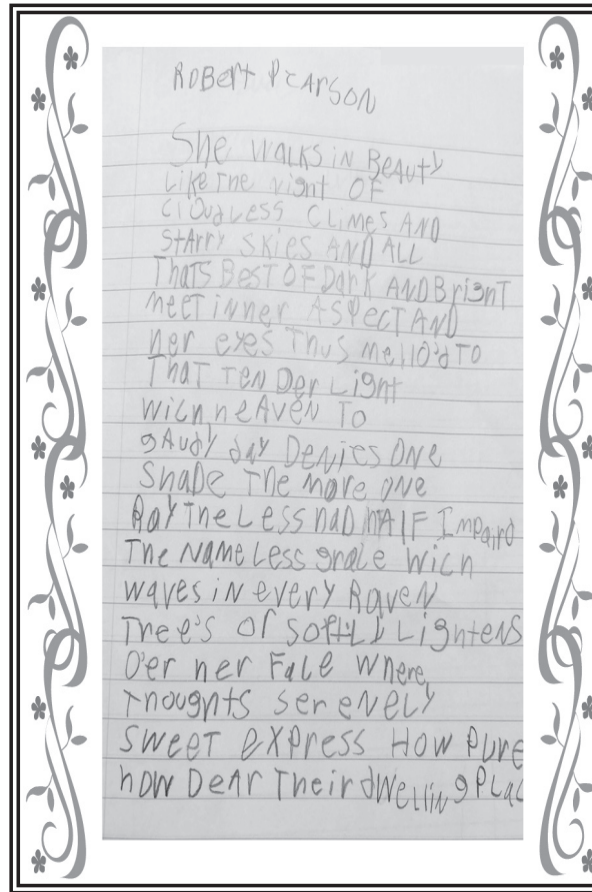 RoBert PeArsoN
She walks in Beauty
Like The night OF
ClOudLess Climes AND
StArry Skies AND ALL
Thats Best OF Dark AND Brignt
meet inner Aspect AND
ner eyes Thus mello'd TO
That TenDer Lignt
wicn neAven To
gAudy day Denies One
Snade The more One
Ray tne Less nad hAlF Impaird
The NameLess grace wicn
waves iN every RaveN
Tree's Or softly LigntenS
O'er ner Face where
Thougnts sereNeLy
Sweet express How pure
how Dear Their dweLLing PLac